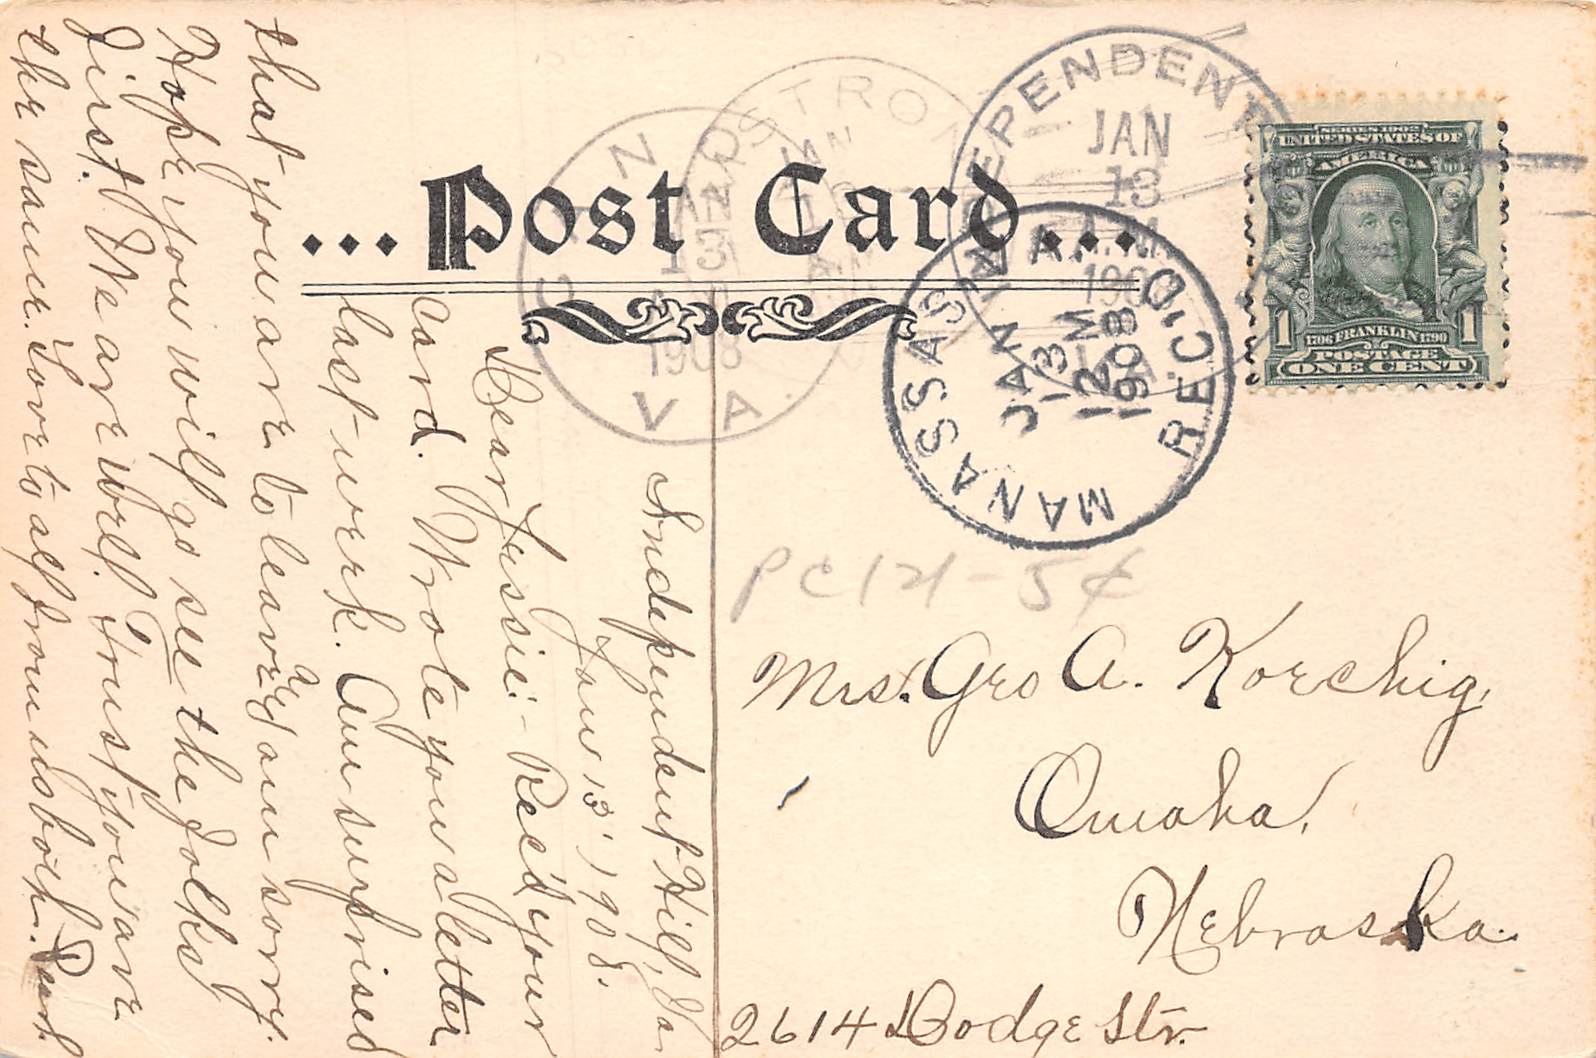 ... Post Card ...
INDEPENDENT
JAN
13
A.M
1908
MANASSAS
REC'D
JAN
13
12 M
1908
CAN
JAN
13
1908
VA.
OSTRO
JAN
SERIES 1902
UNITED STATES OF
AMERICA
1706 FRANKLIN 1790
1 1
POSTAGE
ONE CENT
Independent Hill, Va
Jan 13' 1908.
Dear Lassie:- Rec'd your
card. Wrote you a letter
last week. Am surprised
that you are to leave and am sorry.
Hope you will go see the folks
first. We are well. Trust you are
the same. Love to all from us both. Pearl
PC121-5¢
Mrs. Geo A. Korchig,
Omaha,
Nebraska.
2614 Dodge Str.